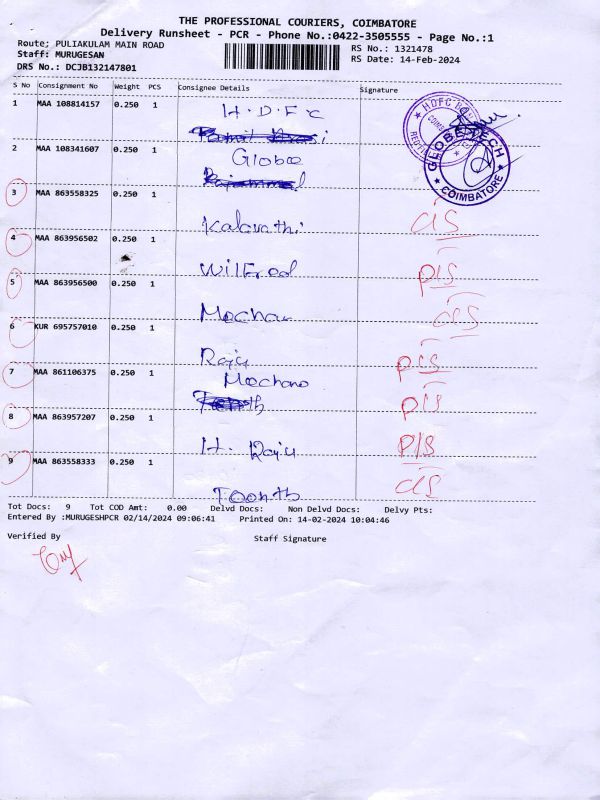 THE PROFESSIONAL COURIERS, COIMBATORE
Delivery Runsheet - PCR - Phone No.:0422-3505555 - Page No.:1
Route; PULIAKULAM MAIN ROAD
RS No.: 1321478
Staff: MURUGESAN
RS Date: 14-Feb-2024
DRS No.: DCJB132147801
S No Consignment No Weight PCS Consignee Details Signature
1 MAA 108814157 0.250 1 H.D.F.C
HDFC
2 MAA 108341607 0.250 1 Globee
GLOBE TECH
COIMBATORE
3 MAA 863558325 0.250 1
Kalavathi
4 MAA 863956502 0.250 1
Wilfred P/S
5 MAA 863956500 0.250 1
Mechan
6 KUR 695757010 0.250 1
Raju P/S
7 MAA 861106375 0.250 1 Mechano
P/S
8 MAA 863957207 0.250 1
H. Raju P/S
9 MAA 863558333 0.250 1
Toonth
Tot Docs: 9 Tot COD Amt: 0.00 Delvd Docs: Non Delvd Docs: Delvy Pts:
Entered By :MURUGESHPCR 02/14/2024 09:06:41 Printed On: 14-02-2024 10:04:46
Verified By Staff Signature